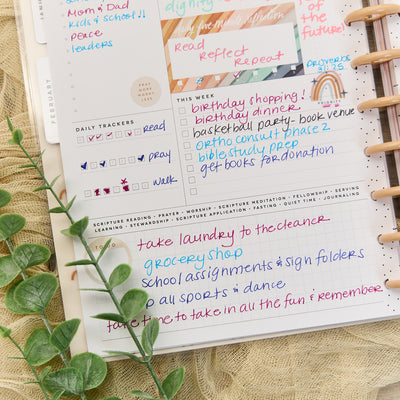 Mom & Dad
Kids & School!!
Peace
leaders
PRAY
MORE
WORRY
LESS
dignity
Read
Reflect
Repeat
of
the
future!
PROVERBS
31:25
FEBRUARY
DAILY TRACKERS
read
pray
walk
THIS WEEK
birthday shopping!
birthday dinner.
basketball party - book venue
ortho consult phase 2
bible study prep
get books for donation
SCRIPTURE READING • PRAYER • WORSHIP • SCRIPTURE MEDITATION • FELLOWSHIP • SERVING
LEARNING • STEWARDSHIP • SCRIPTURE APPLICATION • FASTING • QUIET TIME • JOURNALING
TO DO
take laundry to the cleaner
grocery shop
school assignments & sign folders
all sports & dance
take time to take in all the fun & remember